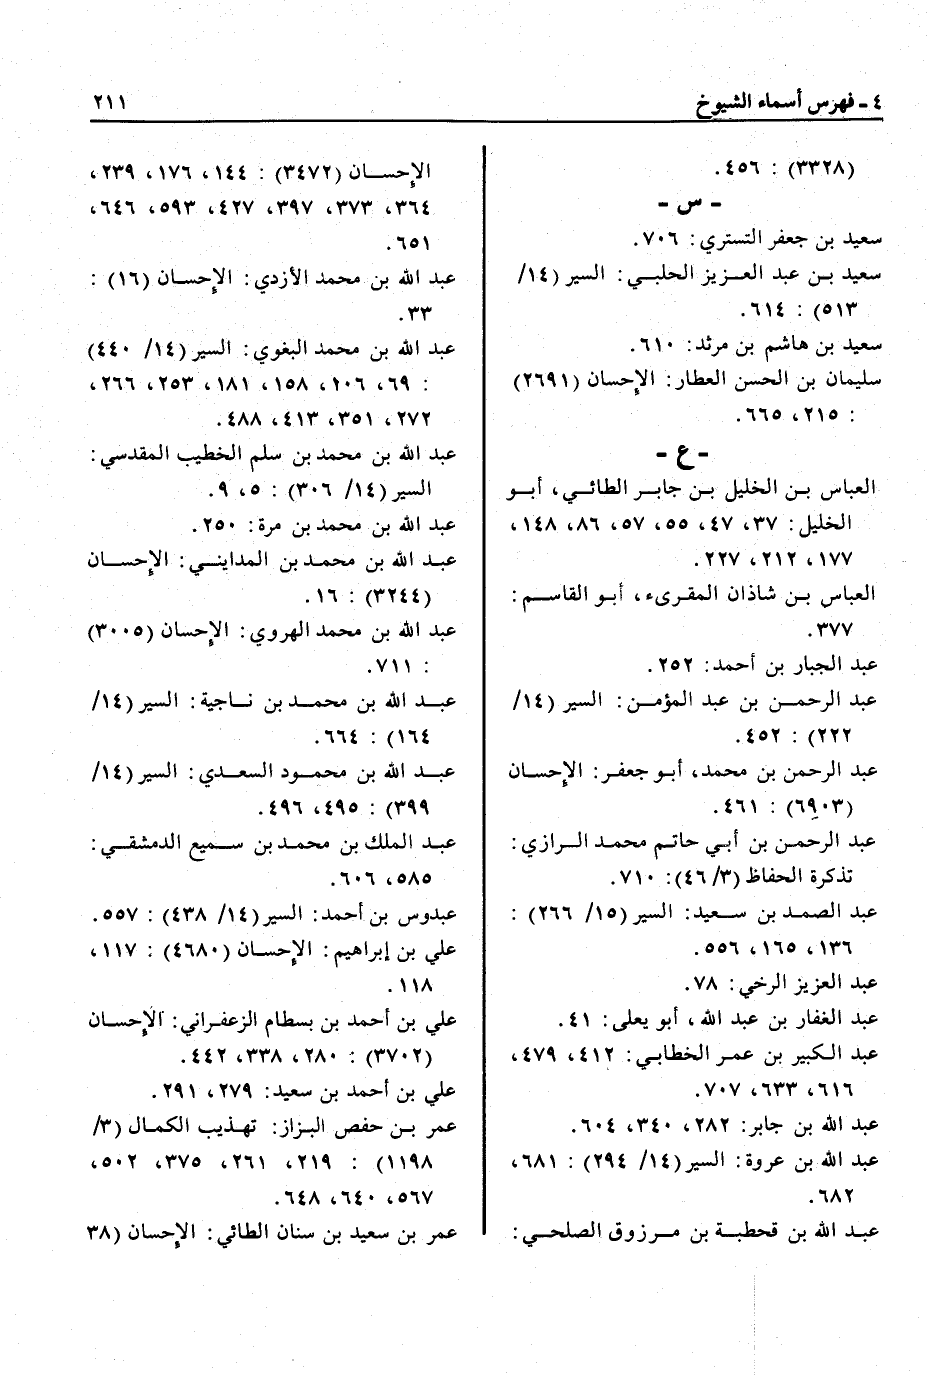 ٤ ـ فهرس أسماء الشيوخ
٢١١
(٣٣٢٨) : ٤٥٦.
ـ س ـ
سعيد بن جعفر التستري: ٧٠٦.
سعيد بـن عبد العـزيز الحلبـي: السير (١٤/
٥١٣) : ٦١٤.
سعيد بن هاشم بن مرثد: ٦١٠.
سليمان بن الحسن العطار: الإحسان (٢٦٩١)
: ٢١٥، ٦٦٥.
ـ ع ـ
العباس بـن الخليل بـن جابـر الطائـي، أبـو
الخليل: ٣٧، ٤٧، ٥٥، ٥٧، ٨٦، ١٤٨،
١٧٧، ٢١٢، ٢٢٧.
العباس بـن شاذان المقرىء، أبـو القاسـم:
٣٧٧.
عبد الجبار بن أحمد: ٢٥٢.
عبد الرحمـن بن عبد المؤمـن: السير (١٤/
٢٢٢) : ٤٥٢.
عبد الرحمن بن محمد، أبـو جعفـر: الإحسان
(٦٩٠٣) : ٤٦١.
عبد الرحمـن بن أبـي حاتـم محمد الـرازي:
تذكرة الحفاظ (٣/ ٤٦): ٧١٠.
عبد الصمـد بن سـعيد: السير (١٥/ ٢٦٦) :
١٣٦، ١٦٥، ٥٥٦.
عبد العزيز الرخي: ٧٨.
عبد الغفار بن عبد الله، أبو يعلى: ٤١.
عبد الكبير بن عمر الخطابي: ٤١٢، ٤٧٩،
٦١٦، ٦٣٣، ٧٠٧.
عبد الله بن جابر: ٢٨٢، ٣٤٠، ٦٠٤.
عبد الله بن عروة: السير (١٤/ ٢٩٤) : ٦٨١،
٦٨٢.
عبـد الله بن قحطبـة بن مـرزوق الصلحـي:
الإحسـان (٣٤٧٢) : ١٤٤، ١٧٦، ٢٣٩،
٣٦٤، ٣٧٣، ٣٩٧، ٤٢٧، ٥٩٣، ٦٤٦،
٦٥١.
عبد الله بن محمد الأزدي: الإحسان (١٦) :
٣٣.
عبد الله بن محمد البغوي: السير (١٤/ ٤٤٠)
: ٦٩، ١٠٦، ١٥٨، ١٨١، ٢٥٣، ٢٦٦،
٢٧٢، ٣٥١، ٤١٣، ٤٨٨.
عبد الله بن محمد بن سلم الخطيب المقدسي:
السير (١٤/ ٣٠٦) : ٥، ٩.
عبد الله بن محمد بن مرة: ٢٥٠.
عبـد الله بن محمـد بن المداينـي: الإحسـان
(٣٢٤٤) : ١٦.
عبد الله بن محمد الهروي: الإحسان (٣٠٠٥)
: ٧١١.
عبــد الله بن محمــد بن نــاجية: السير (١٤/
١٦٤) : ٦٦٤.
عبــد الله بن محمـود السعـدي: السير (١٤/
٣٩٩) : ٤٩٥، ٤٩٦.
عبـد الملك بن محمـد بن سـميع الدمشقـي:
٥٨٥، ٦٠٦.
عبدوس بن أحمد: السير (١٤/ ٤٣٨) : ٥٥٧.
علي بن إبراهيم: الإحسـان (٤٦٨٠) : ١١٧،
١١٨.
علي بن أحمد بن بسطام الزعفـراني: الإحسان
(٣٧٠٢) : ٢٨٠، ٣٣٨، ٤٤٢.
علي بن أحمد بن سعيد: ٢٧٩، ٢٩١.
عمر بـن حفص البـزاز: تهـذيب الكمـال (٣/
١١٩٨) : ٢١٩، ٢٦١، ٣٧٥، ٥٠٢،
٥٦٧، ٦٤٠، ٦٤٨.
عمر بن سعيد بن سنان الطائي: الإحسان (٣٨